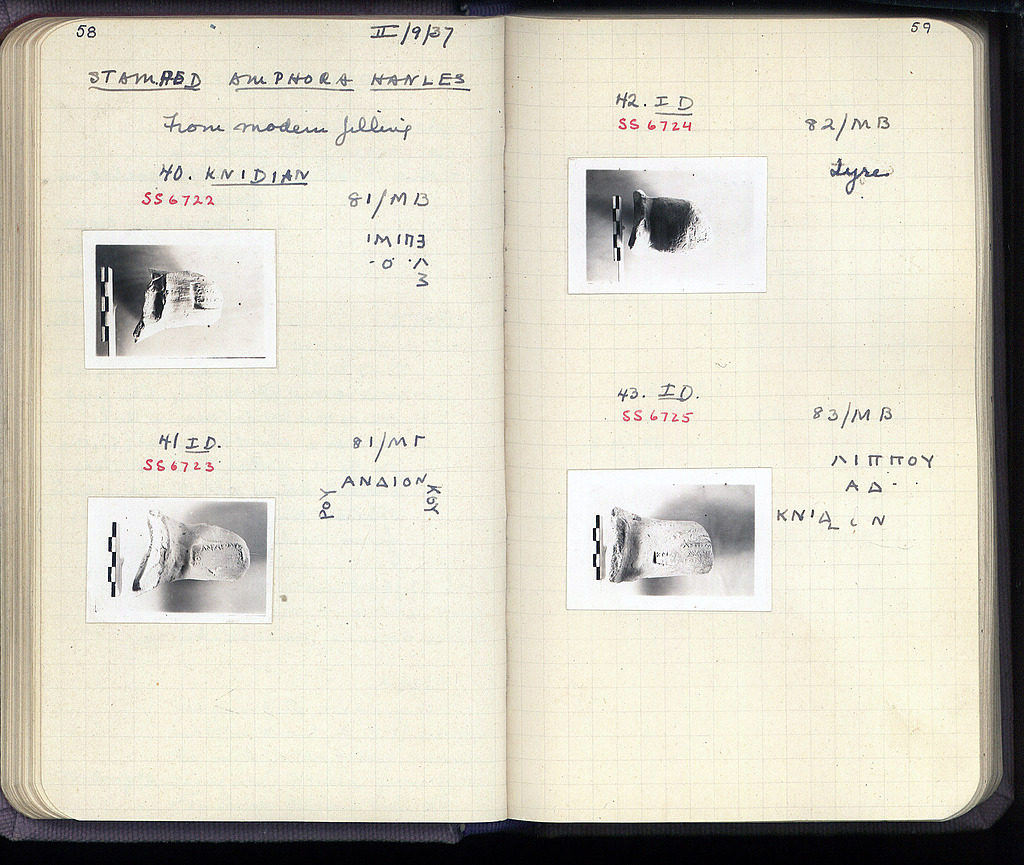 58
II/9/37
STAMPED AMPHORA HANLES
From modern filling
40. KNIDIAN
SS 6722
81/ΜΒ
ΙΜΙΠΕ
- Ο · Λ
41 ID.
SS 6723
81/ΜΓ
ΑΝΔΙΟΝ
ΡΟΥ
ΚΟΥ
59
42. ID
SS 6724
82/ΜΒ
Lyre
43. ID.
SS 6725
83/ΜΒ
ΛΙΠΠΟΥ
ΑΔ·